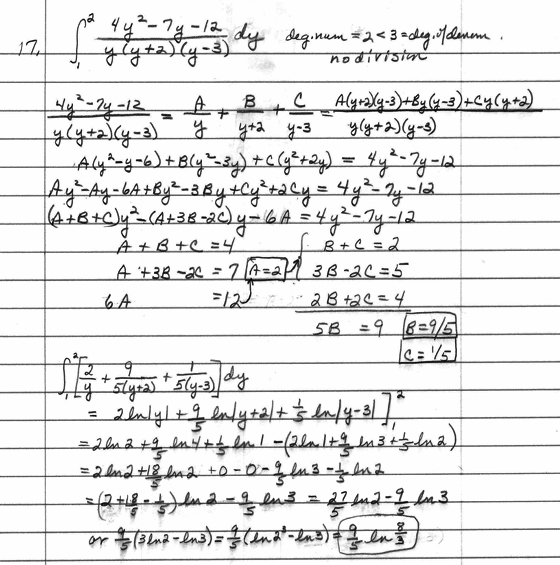 17. ∫₁² (4y²-7y-12)/(y(y+2)(y-3)) dy deg.num = 2 < 3 = deg.of denom.
no division
(4y²-7y-12)/(y(y+2)(y-3)) = A/y + B/(y+2) + C/(y-3) = (A(y+2)(y-3)+By(y-3)+Cy(y+2))/(y(y+2)(y-3))
A(y²-y-6)+B(y²-3y)+C(y²+2y) = 4y²-7y-12
Ay²-Ay-6A+By²-3By+Cy²+2Cy = 4y²-7y-12
(A+B+C)y²-(A+3B-2C)y-6A = 4y²-7y-12
A + B + C = 4 B + C = 2
A + 3B - 2C = 7 A=2 3B - 2C = 5
6A = 12 2B + 2C = 4
5B = 9 B = 9/5
C = 1/5
∫₁² [2/y + 9/(5(y+2)) + 1/(5(y-3))] dy
= 2 ln|y| + 9/5 ln|y+2| + 1/5 ln|y-3| ]₁²
= 2 ln 2 + 9/5 ln 4 + 1/5 ln 1 - (2 ln 1 + 9/5 ln 3 + 1/5 ln 2)
= 2 ln 2 + 18/5 ln 2 + 0 - 0 - 9/5 ln 3 - 1/5 ln 2
= (2 + 18/5 - 1/5) ln 2 - 9/5 ln 3 = 27/5 ln 2 - 9/5 ln 3
or 9/5 (3 ln 2 - ln 3) = 9/5 (ln 2³ - ln 3) = 9/5 ln 8/3